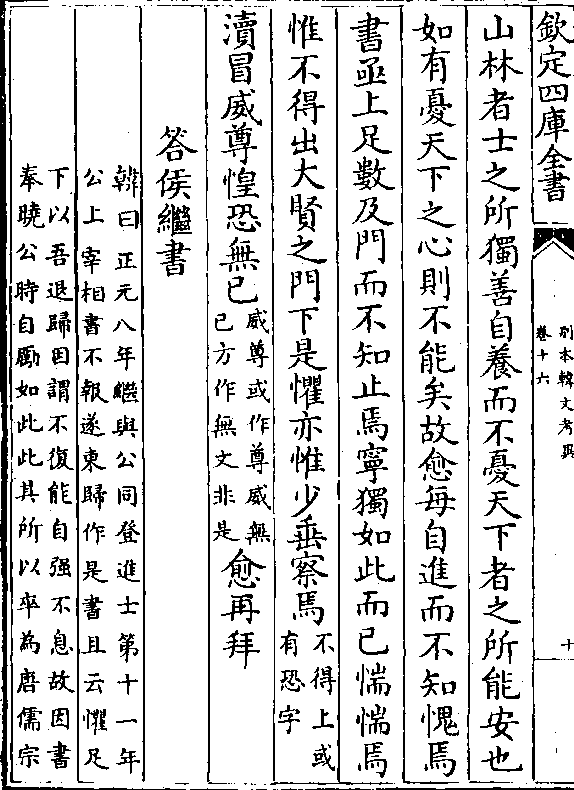 欽定四庫全書
別本韓文考異
卷十六
十
山林者士之所獨善自養而不憂天下者之所能安也
如有憂天下之心則不能矣故愈每自進而不知愧焉
書亟上足數及門而不知止焉寧獨如此而已惴惴焉
惟不得出大賢之門下是懼亦惟少垂察焉不得上或有恐字
瀆冒威尊惶恐無已威尊或作尊威無已方作無文非是愈再拜
答侯繼書
韓曰正元八年繼與公同登進士第十一年
公上宰相書不報遂東歸作是書且云懼足
下以吾退歸因謂不復能自强不息故因書
奉曉公時自勵如此此其所以卒為唐儒宗